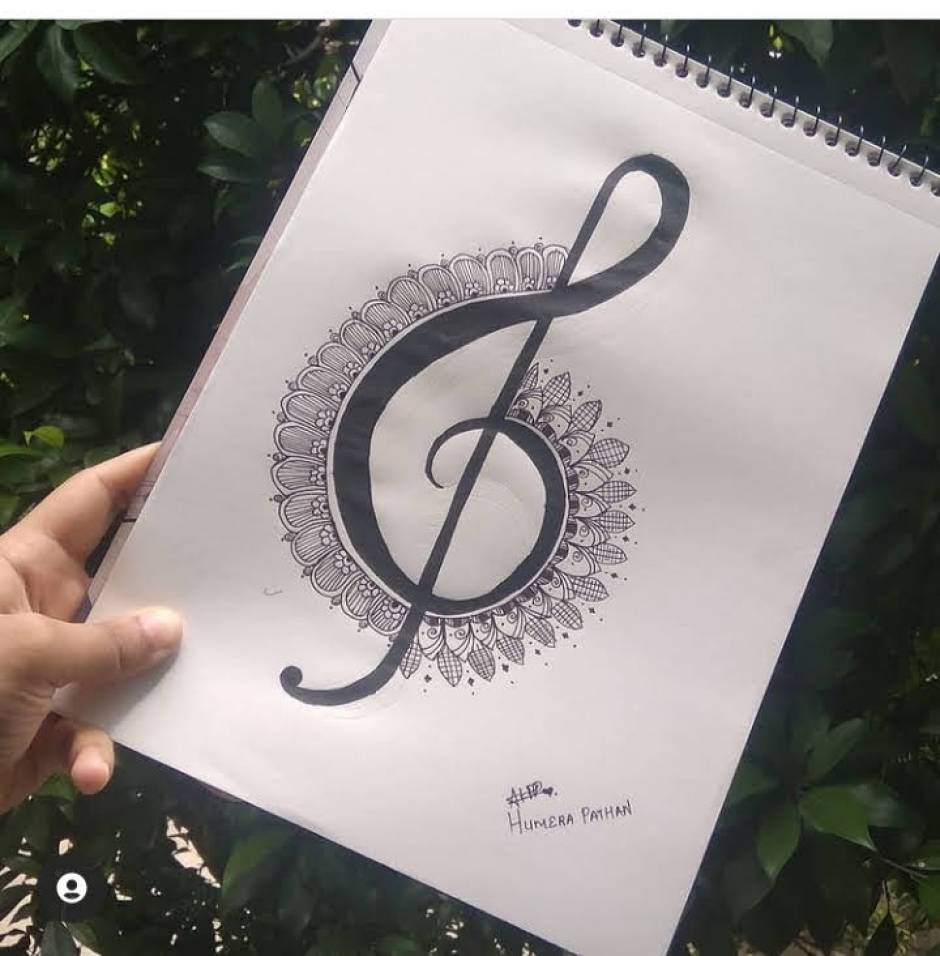 HUMERA PATHAN